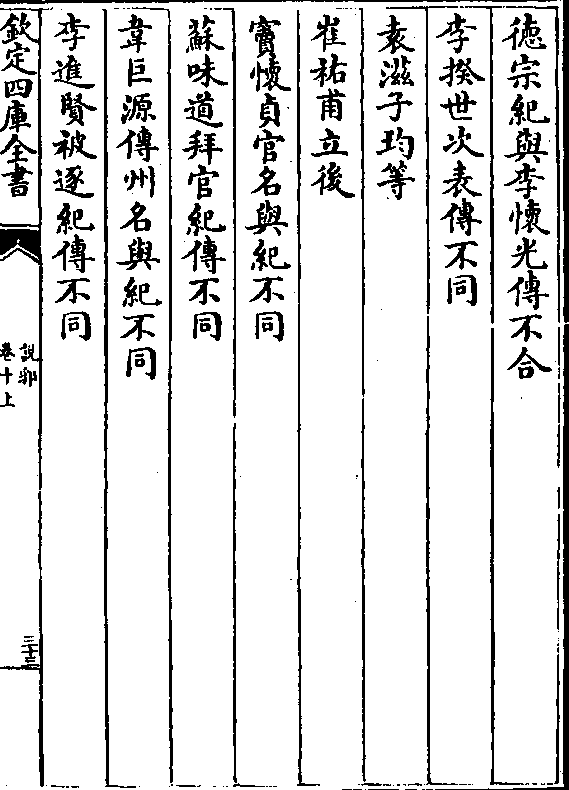 徳宗紀與李懐光傳不合
李揆世次表傳不同
袁滋子玓等
崔祐甫立後
竇懷貞官名與紀不同
蘇味道拜官紀傳不同
韋巨源傳州名與紀不同
李進賢被逐紀傳不同
欽定四庫全書
說郛
卷十上
三十三